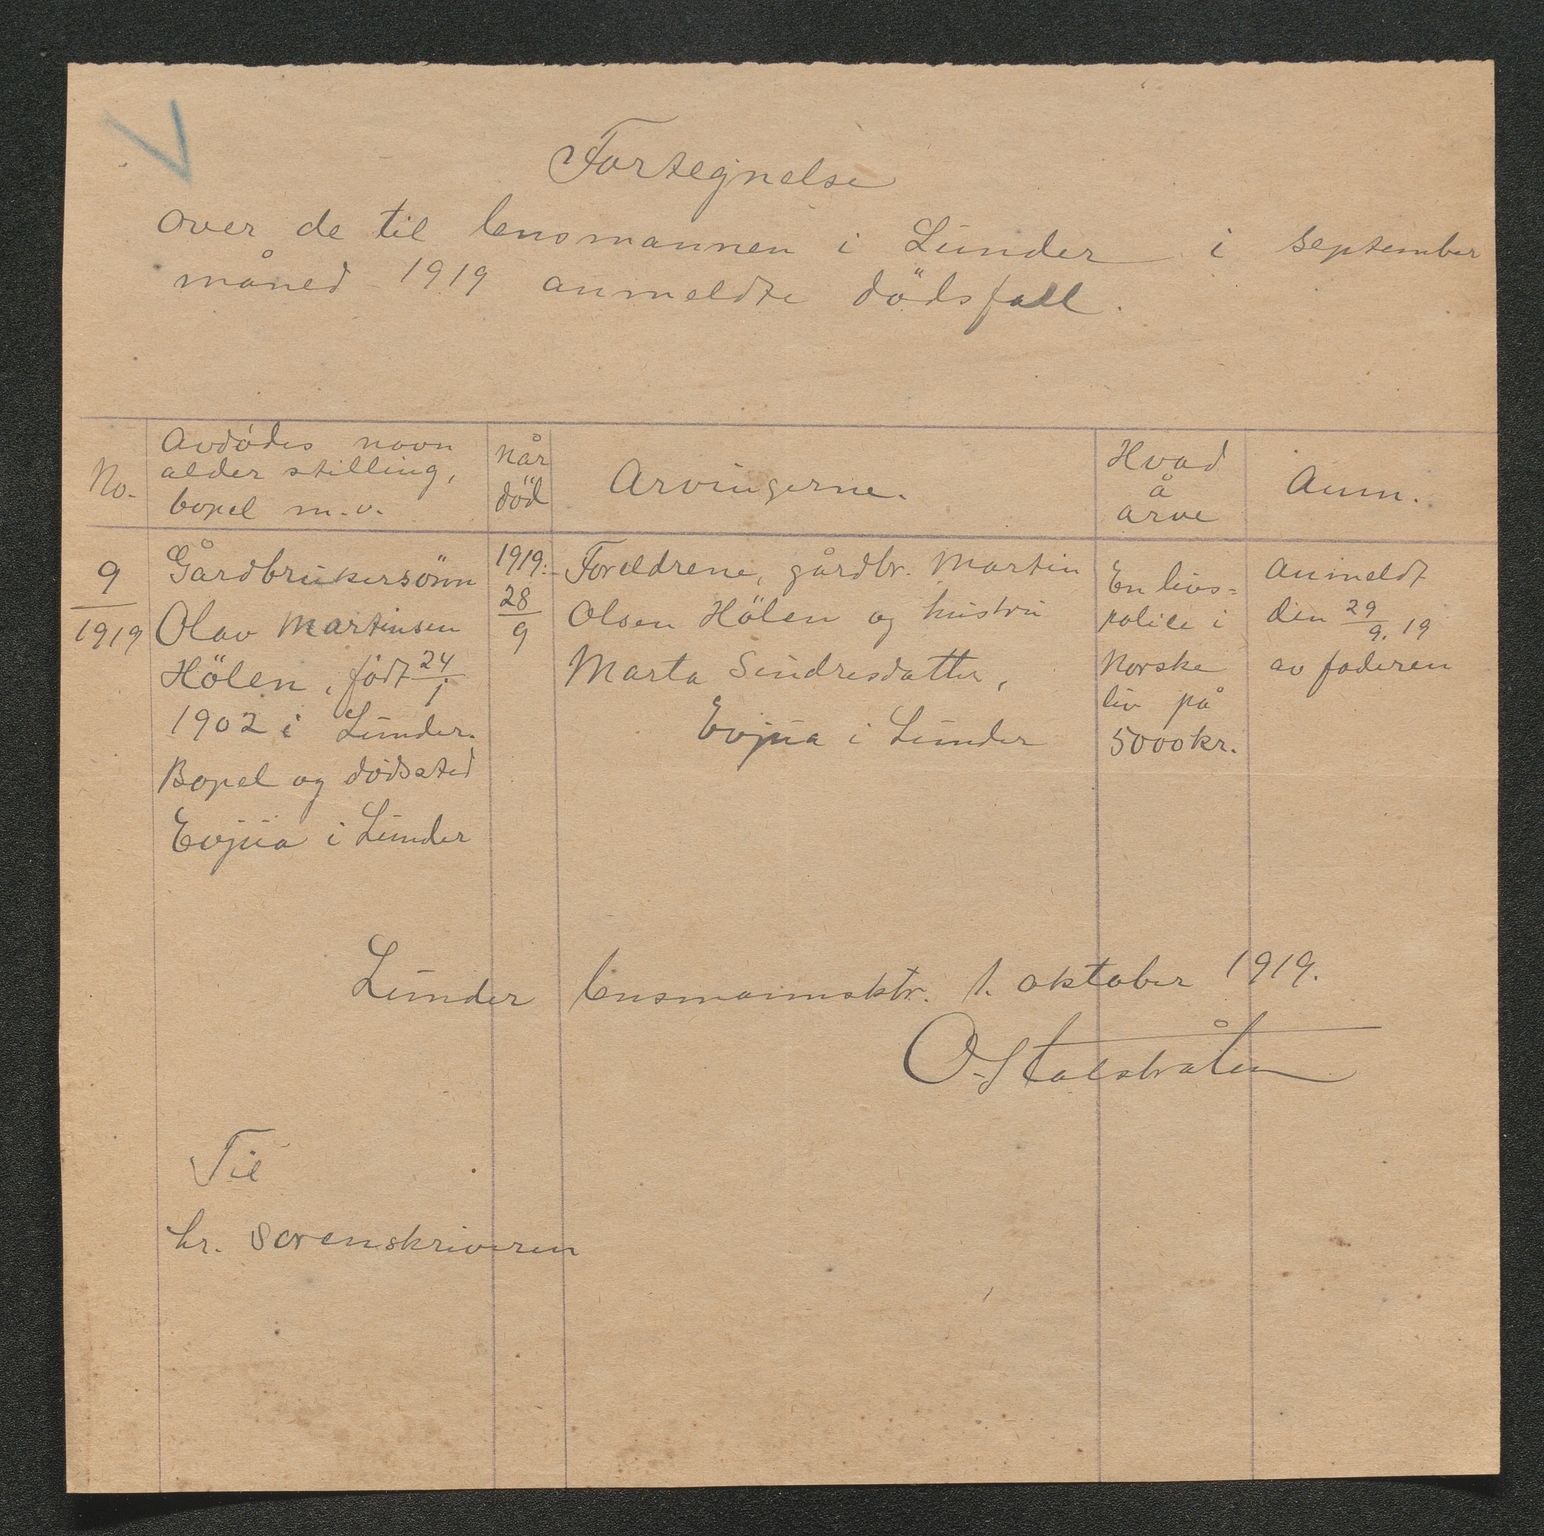 Fortegnelse
over de til lensmannen i Lunder i september
måned 1919 anmeldte dödsfall.
No.
Avdödes navn
alder stilling,
bopel m.v.
når
död
Arvingerne.
Hvad
å
arve
Anm.
9
1919
Gårdbrukersönn
Olav Martinsen
Hölen, födt 24/1
1902 i Lunder.
Bopel og dödssted
Evjua i Lunder
1919.
28/9
Foreldrene, gårdbr. Martin
Olsen Hölen og hustru
Marta Sindresdatter,
Evjua i Lunder
En livs=
polise i
Norske
liv på
5000 kr.
Anmeldt
den 29/9. 19
av faderen
Lunder lensmannsktr. 1. oktober 1919.
O. Stalsbråten
Til
hr. Sorenskriveren